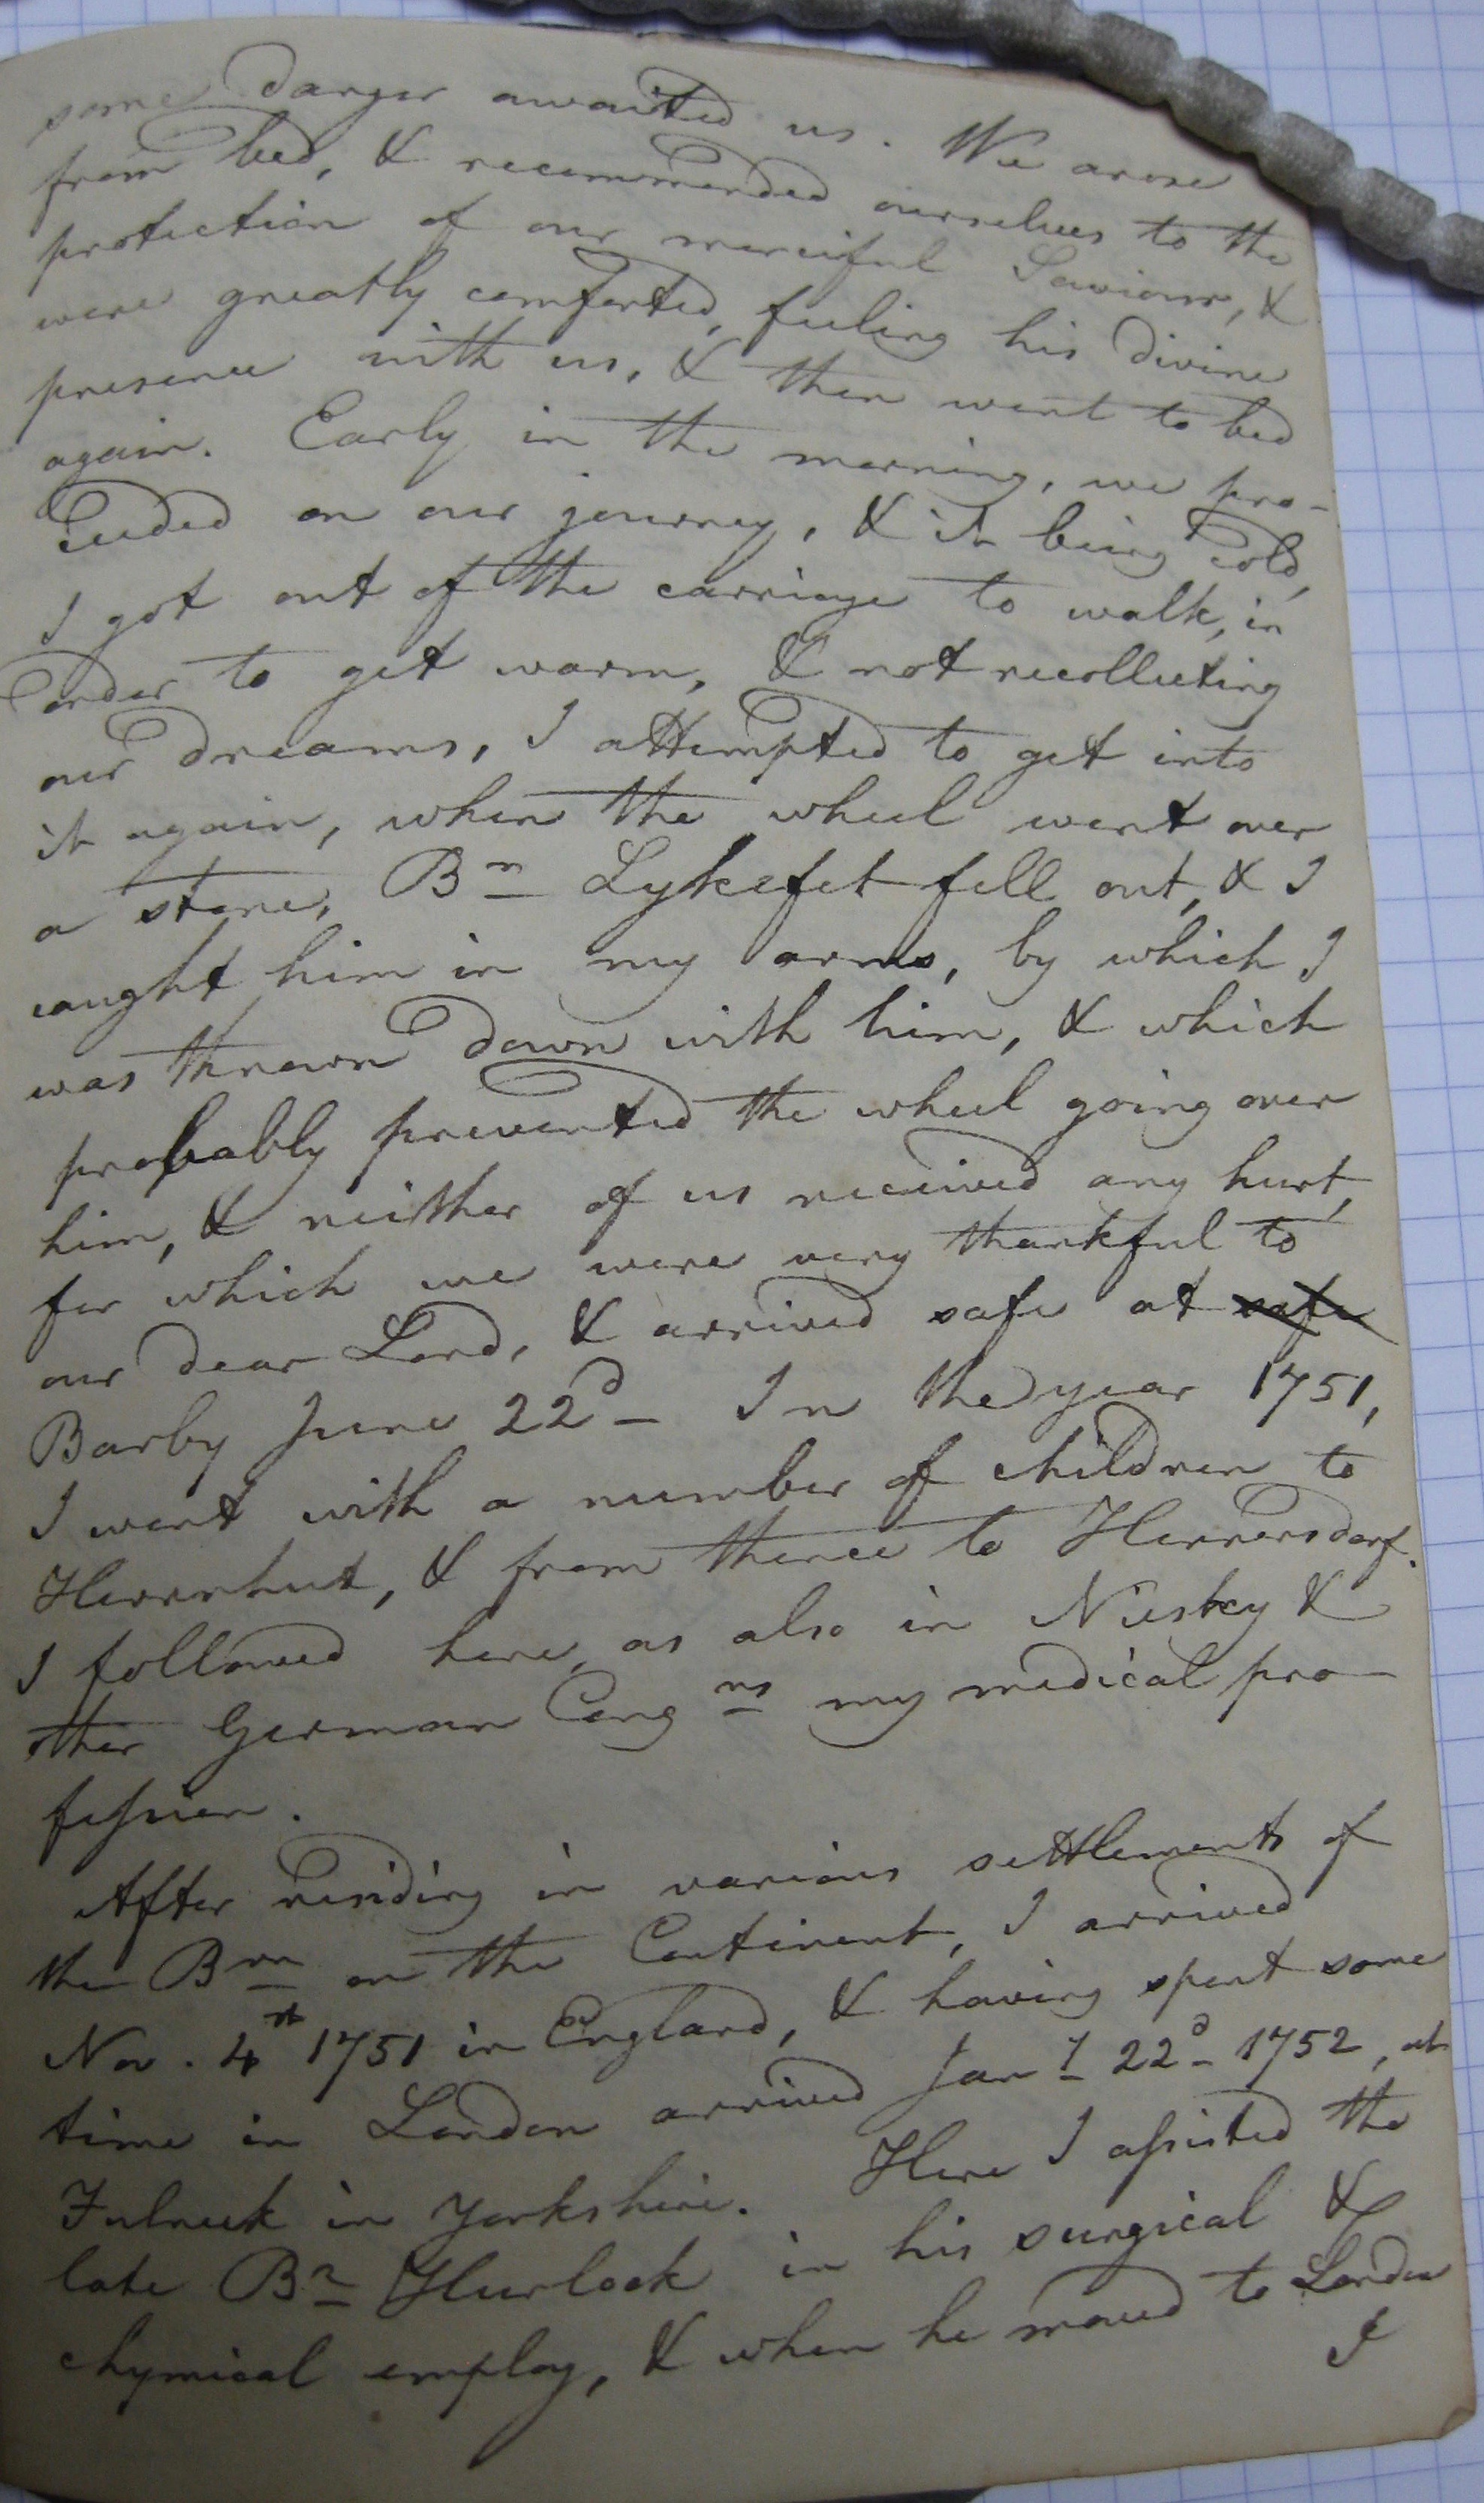 some danger awaited us. We arose
from bed, & recommended ourselves to the
protection of our merciful Saviour, &
were greatly comforted, feeling his divine
presence with us, & then went to bed
again. Early in the morning, we pro-
ceeded on our journey, & it being cold,
I got out of the carriage to walk, in
order to get warm, & not recollecting
our dreams, I attempted to get into
it again, when the wheel went over
a stone, Br Lykefet fell out, & I
caught him in my arms, by which I
was thrown down with him, & which
probably prevented the wheel going over
him, & neither of us received any hurt,
for which we were very thankful to
our dear Lord, & arrived safe at safe
Barby June 22d - In the year 1751,
I went with a number of children to
Herrnhut, & from thence to Hennersdorf.
I followed here, as also in Niesky &
other German Congns my medical pro-
feſsion.
After residing in various settlements of
the Brn on the Continent, I arrived
Nov. 4th 1751 in England, & having spent some
time in London arrived Jany 22d 1752, at
Fulneck in Yorkshire. Here I aſsisted the
late Br Hurlock in his surgical &
chymical employ, & when he moved to London
I